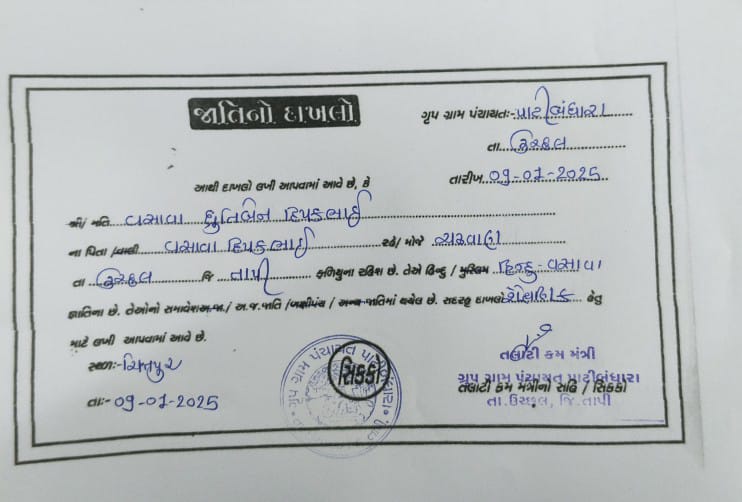 જાતિનો દાખલો
ગૃપ ગ્રામ પંચાયતઃ- પાટીબંધારા
તા. ઉચ્છલ
તારીખ. 09-01-2025
આથી દાખલો લખી આપવામાં આવે છે, કે
શ્રી/ મતિ વસાવા ધ્રુતિબેન દિપકભાઈ
ના પિતા /વાલી વસાવા દિપકભાઈ રહે/ મોજે
તા ઉચ્છલ જિ તાપી ફળિયુના રહિશ છે. તેઓ હિન્દુ / મુસ્લિમ હિન્દુ-વસાવા
જ્ઞાતિના છે. તેઓનો સમાવેશ અ.જા./ અ.જ.જાતિ /બક્ષીપંચ / અન્ય જાતિમાં થયેલ છે. સદરહુ દાખલો શૈક્ષણિક હેતુ
માટે લખી આપવામાં આવે છે.
સ્થળઃ-
તા:- 09-01-2025
સિક્કો
તલાટી કમ મંત્રી
ગૃપ ગ્રામ પંચાયત પાટીબંધારા
તલાટી કમ મંત્રીની સહિ / સિક્કો
તા.ઉચ્છલ, જિ.તાપી